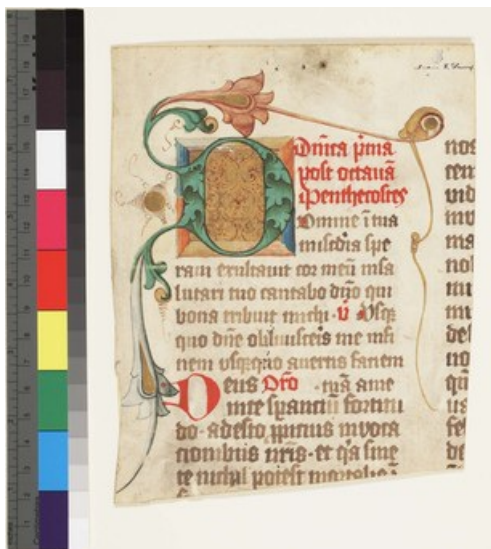 Dnĩca pĩma
post octauã
Penthecostes
Domine ĩ tua
misc̃dia spe
raui exultauit cor meũ ĩ sa
lutari tuo cantabo dño qui
bona tribuit michi · V Vsq
quo dñe obliuisceris me ĩ fi
nem vsq̃quo auertis faciem
Deus Or̃o tuã ame
in te sperantiũ fortitu
do · adesto ꝓpicius inuoca
tionibus nr̃is · et q̃a sine
te nichil potest
nos
cen
vid
mu
ma
nol
mi
de
no
us
de